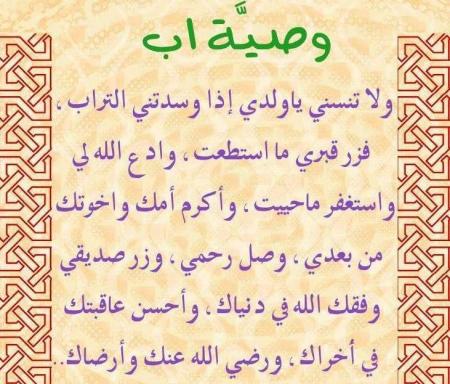 وصيَّة اب
ولا تنسني ياولدي إذا وسدتني التراب ،
فزر قبري ما استطعت ، وادع الله لي
واستغفر ماحييت ، وأكرم أمك واخوتك
من بعدي ، وصل رحمي ، وزر صديقي
وفقك الله في دنياك ، وأحسن عاقبتك
في أخراك ، ورضي الله عنك وأرضاك..